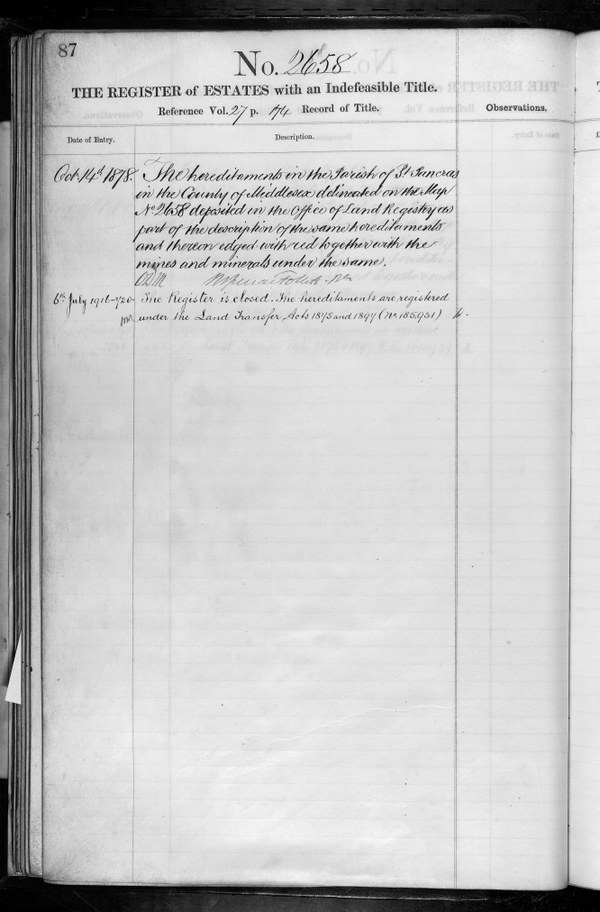 87
No. 2658
THE REGISTER of ESTATES with an Indefeasible Title.
Reference Vol. 27 p. 174 Record of Title.
Observations.
Date of Entry.
Description.
Oct. 14th 1878. The hereditaments in the Parish of St Pancras
in the County of Middlesex delineated on the Map
No 2658 deposited in the Office of Land Registry as
part of the description of the same hereditaments
and thereon edged with red together with the
mines and minerals under the same.
6th July 1916 The Register is closed. The hereditaments are registered
under the Land Transfer Acts 1875 and 1897 (No 185,951)